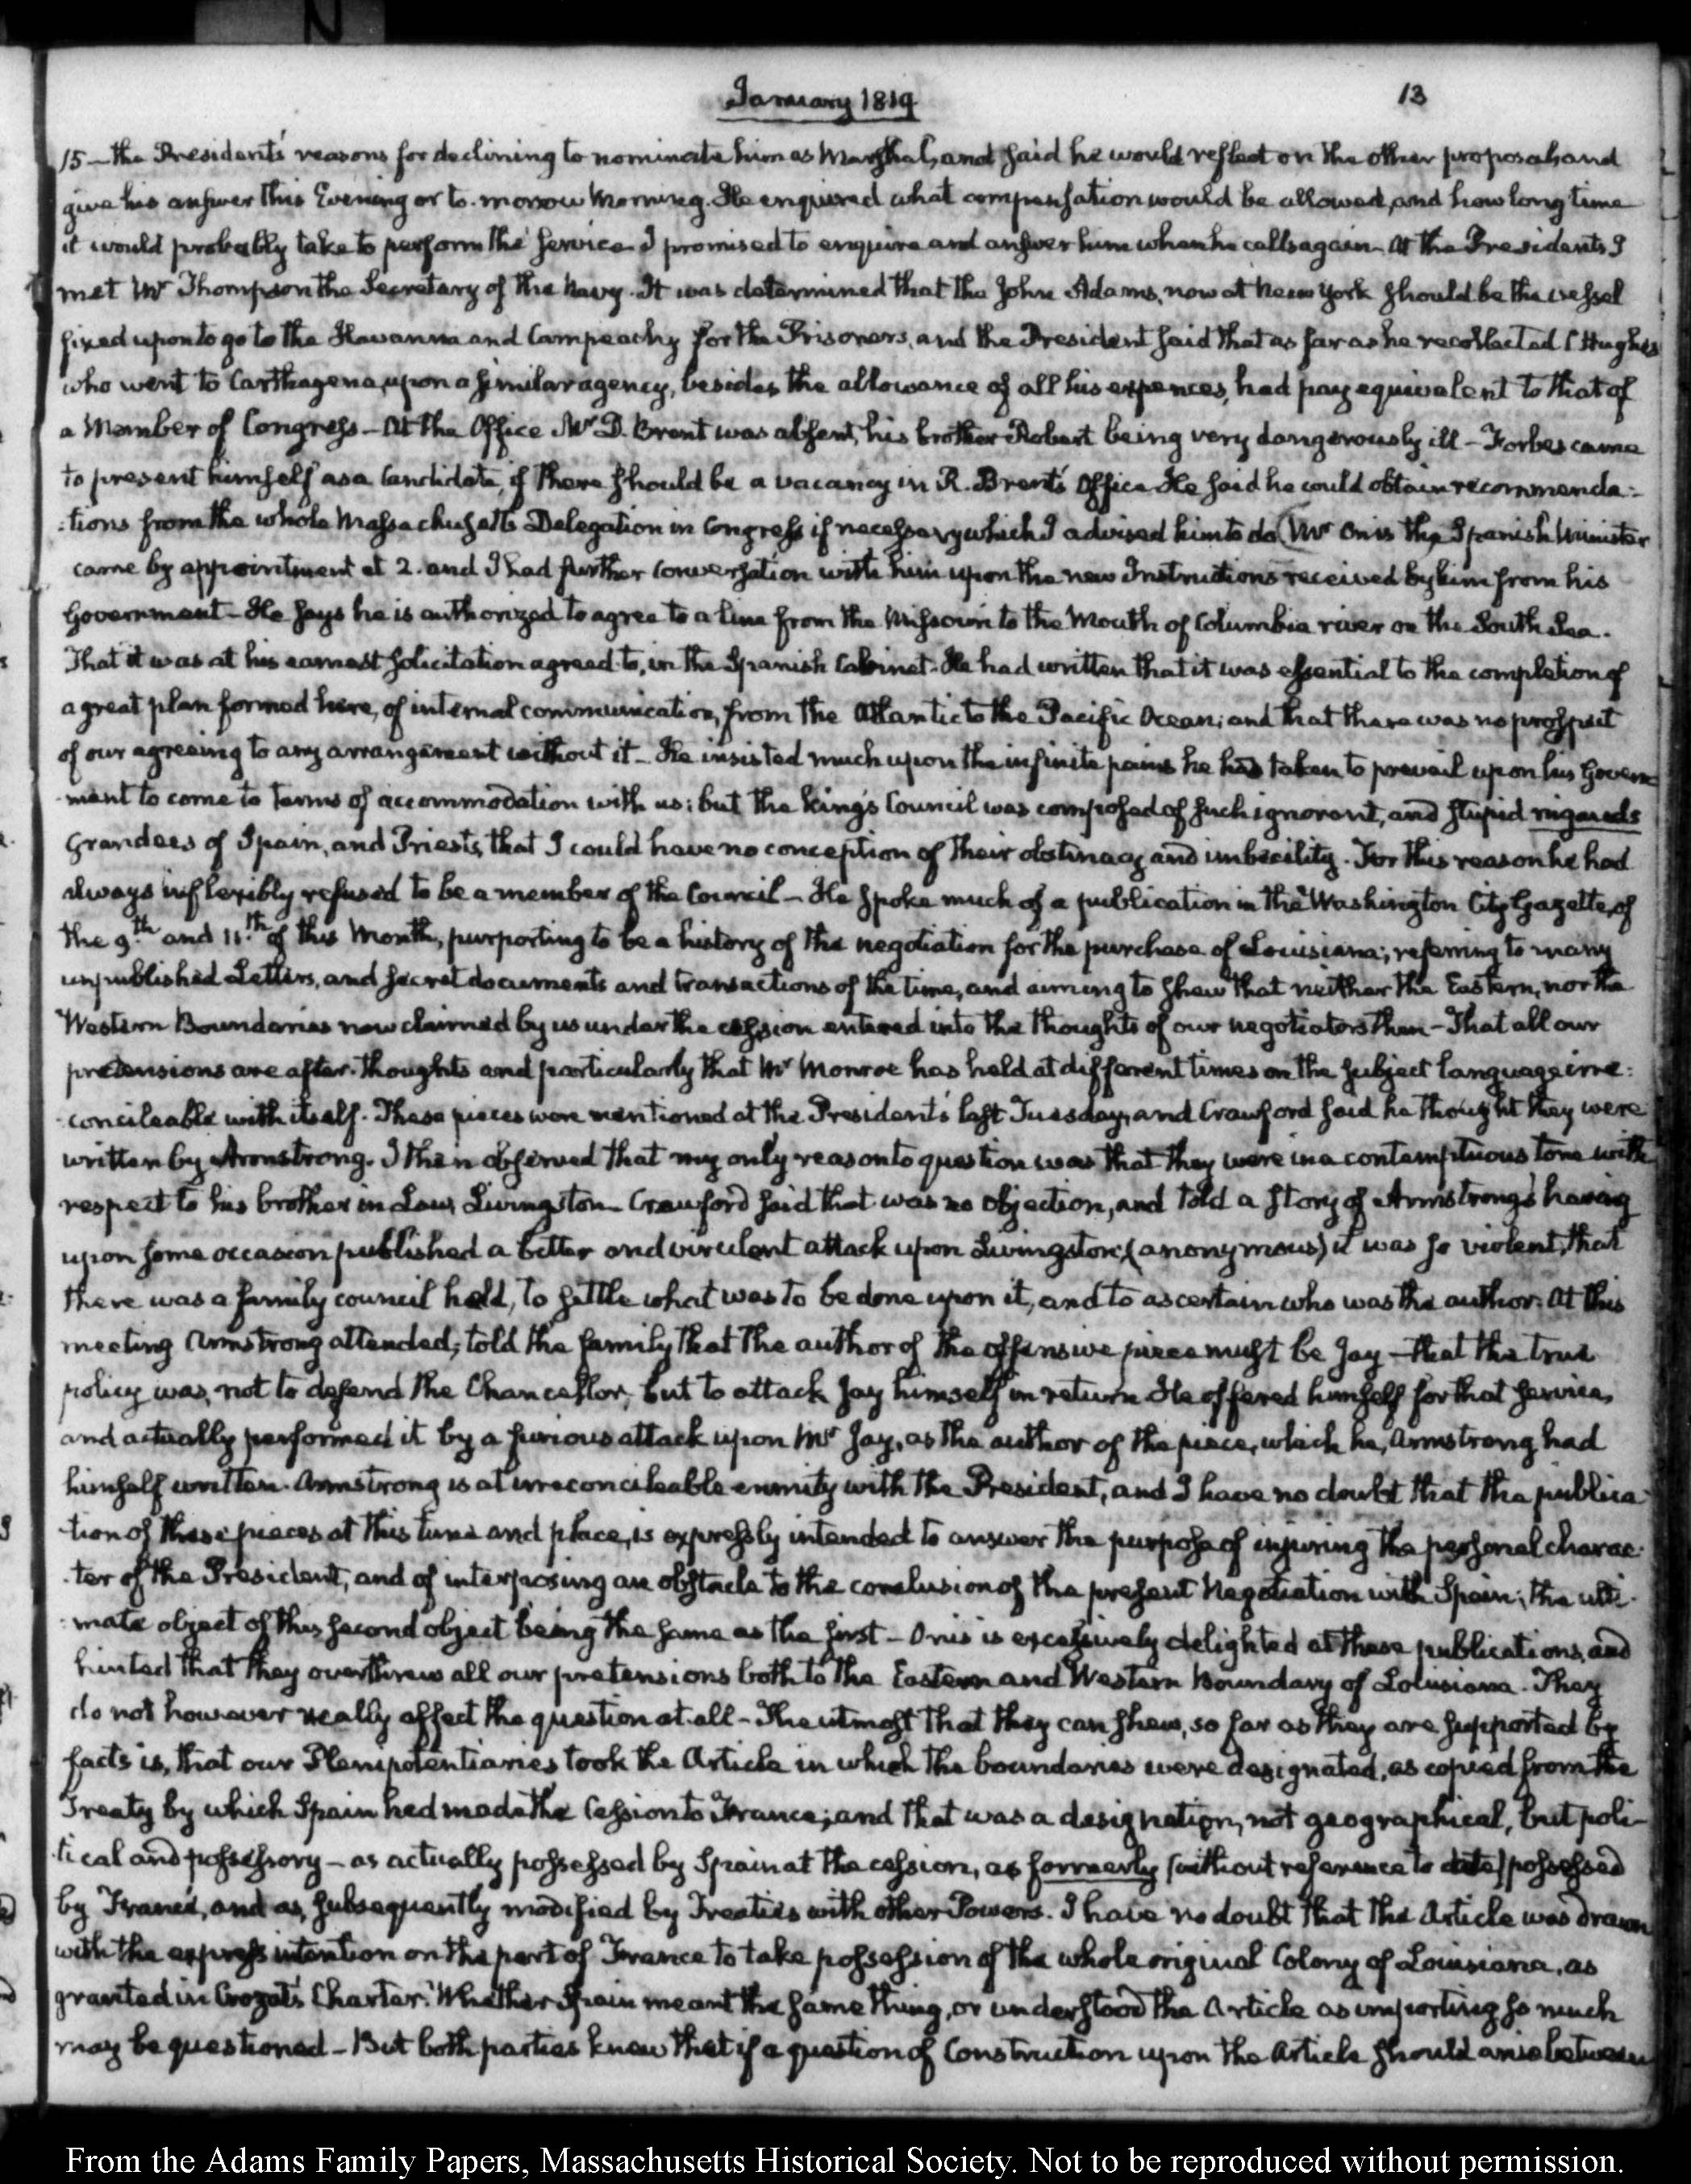 January 1819
13
15 — the President's reasons for declining to nominate him as Marshal, and said he would reflect on the other proposal and
give his answer this Evening or to-morrow Morning. He enquired what compensation would be allowed, and how long time
it would probably take to perform the service. I promised to enquire and answer him when he calls again. At the President's I
met Mr Thompson the Secretary of the Navy. It was determined that the John Adams, now at New York should be the vessel
fixed upon to go to the Havanna and Campeachy for the Prisoners, and the President said that as far as he recollected C Hughes
who went to Carthagena, upon a similar agency, besides the allowance of all his expences, had pay equivalent to that of
a Member of Congress — At the Office Mr D. Brent was absent, his brother Robert being very dangerously ill — Forbes came
to present himself as a Candidate, if there should be a vacancy in R. Brent's Office. He said he could obtain recommenda:
:tions from the whole Massachusetts Delegation in Congress if necessary which I advised him to do (Mr Onis the Spanish Minister
came by appointment at 2. and I had further conversation with him upon the new Instructions received by him from his
Government — He says he is authorized to agree to a line from the Missouri to the Mouth of Columbia river on the South Sea.
That it was at his earnest solicitation agreed to, in the Spanish Cabinet. He had written that it was essential to the completion of
a great plan formed here, of internal communication, from the Atlantic to the Pacific Ocean; and that there was no prospect
of our agreeing to any arrangement without it — He insisted much upon the infinite pains he had taken to prevail upon his Govern
ment to come to terms of accommodation with us; but the King's Council was composed of such ignorant, and stupid nigauds
Grandees of Spain, and Priests, that I could have no conception of their obstinacy and imbecility. For this reason he had
always inflexibly refused to be a member of the Council — He spoke much of a publication in the Washington City Gazette, of
the 9.th and 11.th of this Month, purporting to be a history of the negotiation for the purchase of Louisiana; referring to many
unpublished Letters, and secret documents and transactions of the time, and aiming to shew that neither the Eastern, nor the
Western Boundaries now claimed by us under the cession entered into the thoughts of our negotiators then — That all our
pretensions are after-thoughts and particularly that Mr Monroe has held at different times on the subject language irre:
:concileable with itself. These pieces were mentioned at the President's last Tuesday, and Crawford said he thought they were
written by Armstrong. I then observed that my only reason to question was that they were in a contemptuous tone with
respect to his brother in Law, Livingston — Crawford said that was no objection, and told a story of Armstrong's having
upon some occasion published a bitter and virulent attack upon Livingston; (anonymous) it was so violent, that
there was a family council held, to settle what was to be done upon it, and to ascertain who was the author. At this
meeting Armstrong attended; told the family that the author of the offensive piece must be Jay — that the true
policy was, not to defend the Chancellor, but to attack Jay himself in return. He offered himself for that service,
and actually performed it by a furious attack upon Mr Jay, as the author of the piece, which he, Armstrong had
himself written. Armstrong is at irreconcileable enmity with the President, and I have no doubt that the publica
tion of these pieces at this time and place, is expressly intended to answer the purpose of injuring the personal charac:
:ter of the President, and of interposing an obstacle to the conclusion of the present Negotiation with Spain; the ulti:
:mate object of this second object being the same as the first — Onis is excessively delighted at these publications, and
hinted that they overthrew all our pretensions both to the Eastern and Western Boundary of Louisiana. They
do not however really affect the question at all — The utmost that they can shew, so far as they are supported by
facts is, that our Plenipotentiaries took the Article in which the boundaries were designated, as copied from the
Treaty by which Spain had made the Cession to France; and that was a designation, not geographical, but poli-
tical and possessory — as actually possessed by Spain at the cession, as formerly (without reference to date) possessed
by France, and as subsequently modified by Treaties with other Powers. I have no doubt that the Article was drawn
with the express intention on the part of France to take possession of the whole original Colony of Louisiana, as
granted in Crozat's Charter. Whether Spain meant the same thing, or understood the Article as importing so much
may be questioned — But both parties knew that if a question of Construction upon the Article should arise between
From the Adams Family Papers, Massachusetts Historical Society. Not to be reproduced without permission.